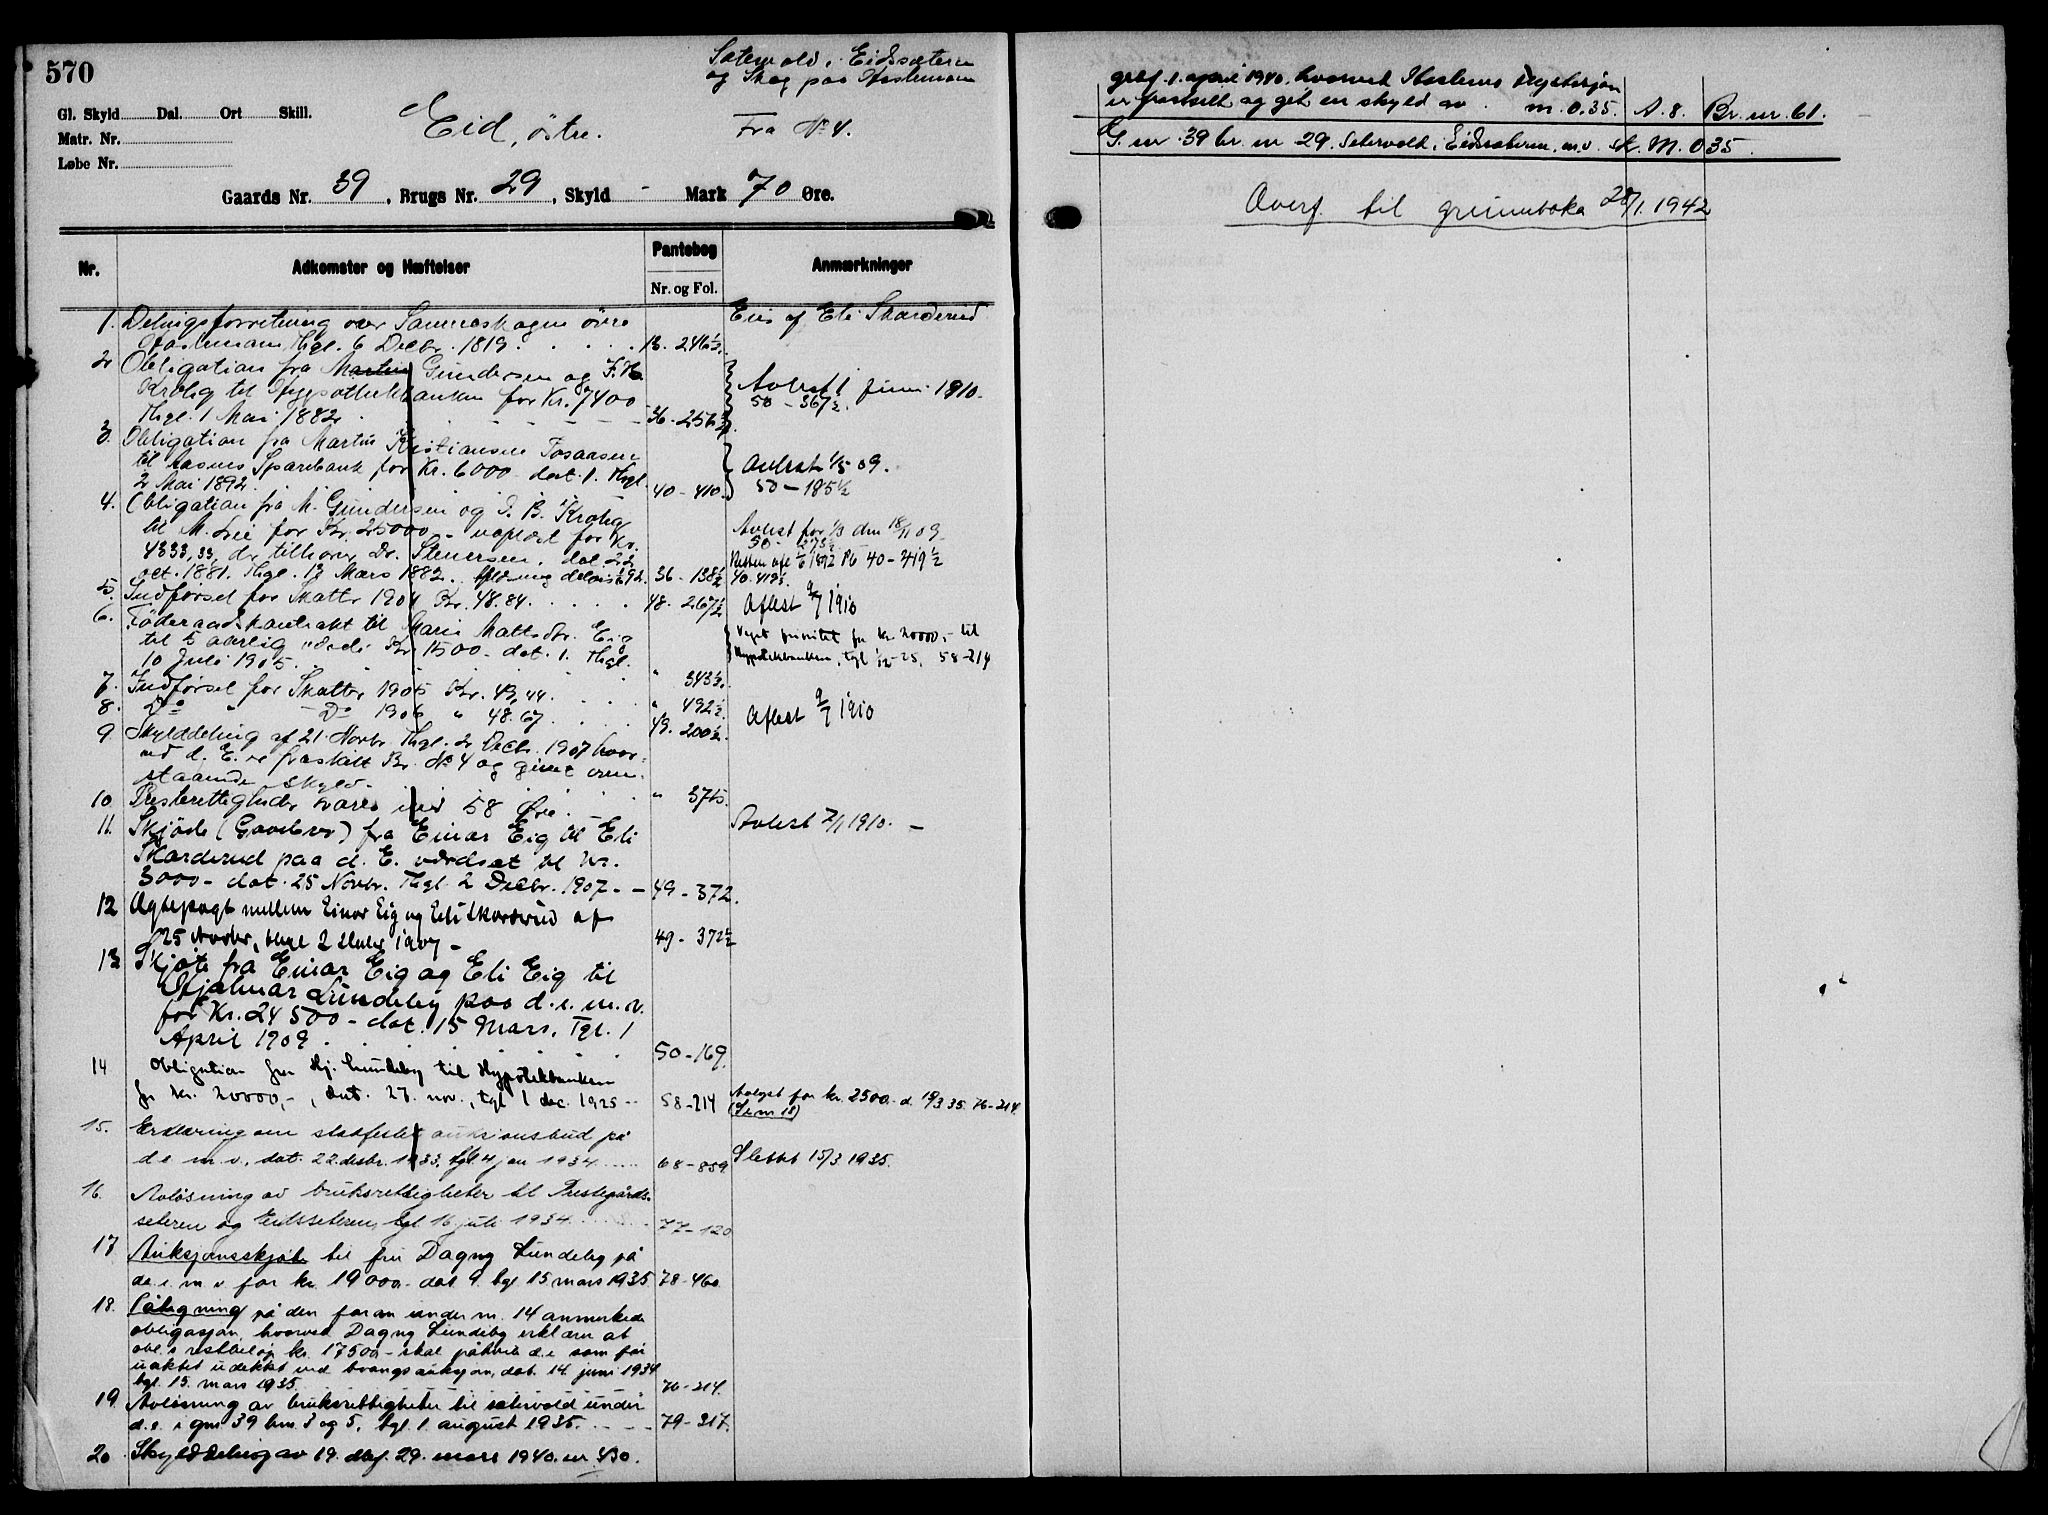 570
Sætervold, Eidssæteren
og Skog paa Hasleman
Gl. Skyld Dal. Ort Skill.
Matr. Nr.
Løbe Nr.
Eid, østre.
Fra No 4.
Gaards Nr. 39, Brugs Nr. 29, Skyld - Mark 70 Øre.
Nr.
Adkomster og Hæftelser
Pantebog
Nr. og Fol.
Anmærkninger
1. Delingsforretning over Sameieskogen øvre
Hasleman, Thgl. 6 Decbr. 1819. 13. 246½.
Eies af Eli Skarderud
2 Obligation fra Martin Gundersen og F. B.
Krohg til Hypothekbanken for Kr. 7400
Thgl. 1 Mai 1882. 36-256½
Avlest 1 juni 1910.
50-367½.
3. Obligation fra Martin Kristiansen Tosaasen
til Aasnes Sparebank for Kr. 6000 dat. 1. Thgl.
2 Mai 1892. 40-410.
Avlest 1/5 09.
50-185½
4. Obligation fra M. Gundersen og F. B. Krohg
til M. Lie for Kr. 25000 - uoplæst for Kr.
4333,33, der tilhører Dr. Stenersen, dat. 22
oct. 1881. Thgl. 13 Mars 1882. 36-138½
Avlest for 1/3 den 18/11 09
Resten afl. 1/6 1892 Pb 40-419½
40-419½
5. Indførsel for Skatter 1904 Kr. 48.84. 48. 267½
Aflest 9/7 1910
6. Føderaadskontrakt til Marie Mattsdtr. Eig
til 5 aarlig værdi Kr. 1500 - dat. 1. Thgl.
10 Juli 1905. " 343½.
Veget prioritet for kr. 20000,- til
Hypotekbanken, tgl 1/12-25. 58-214
7. Indførsel for Skatter 1905 Kr. 43,44. " 492½
8. Do " Do 1906 " 48.67. 49. 200½.
Aflest 9/7 1910
9 Skylddeling af 21 Novbr. Thgl. 2 Decbr. 1907 hvor-
ved d. E. er fraskilt Br. No 4 og givet oven-
staaende skyld. " 371½.
10. Presterettigheder svares med 58 Øre.
Avlest 7/1 1910. -
11. Skjøde (Gavebrev) fra Einar Eig til Eli
Skarderud paa d. E. værdsat til Kr.
3000- dat. 25 Novbr. Thgl. 2 Decbr. 1907. - 49-372.
12 Ægtepagt mellem Einar Eig og Eli Skarderud af
25 Novbr, thgl 2 Decbr 1907 - 49-372½
13 Skjøte fra Einar Eig og Eli Eig til
Hjalmar Lundeby paa d. e. m. v.
for Kr. 24500- dat. 15 Mars. Tgl. 1
April 1909. 50-169.
14 Obligation fra Hj. Lundeby til Hypotekbanken
for kr. 20000,-, dat. 27. nov., tgl 1 dec. 1925 - 58-214
Avlyst for kr. 2500.- d. 15/3 35. 76-214.
(Se nr 18)
15. Erklæring om stadfestet auksjonsbud på
d e m. v., dat. 22. desbr. 1933, tgl. 4 jan 1934 ..... 68-859.
Slettet 15/3 1935.
16. Avløsning av bruksrettigheter til Prestegårds-
seteren og Eidsseteren, tgl 16 juli 1934. 77-120
17 Auksjonsskjøte til fru Dagny Lundeby på
d. e. m v for kr 19000.- dat 9. tgl. 15 mars 1935 78-460
18. Påtegning på den foran under nr. 14 anmerkede
obligasjon, hvorved Dagny Lundeby erklærer at
obl.s restbeløp kr. 17500.- skal påhvile d.e som før
uaktet udekket ved tvangsauksjon, dat. 14. juni 1934
tgl. 15. mars 1935 76-214.
19 Avløsning av bruksrettigheter til setervold under
d.e. i gnr 39 bnr. 3 og 5, tgl. 1. august 1935. - - - 79-317.
20. Skylddeling av 19. dbf. 29. mars 1940. nr 430.
grbf. 1. april 1940, hvorved Haslemo Ungdomsjon
er fraskilt og gitt en skyld av m. 0.35. A. 8. Br. nr. 61.
G. nr 39 br. nr 29. Setervold, Eidsseteren, m.v. sk. M. 0 35.
Overf. til grunnboka 28/1. 1942